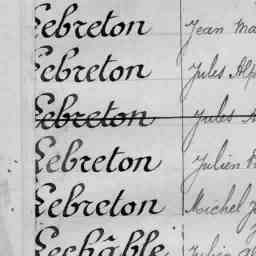 Lebreton Jean Ma
Lebreton Jules Alp
Lebreton Jules A
Lebreton Julien
Lebreton Michel J
Lechâble Julie